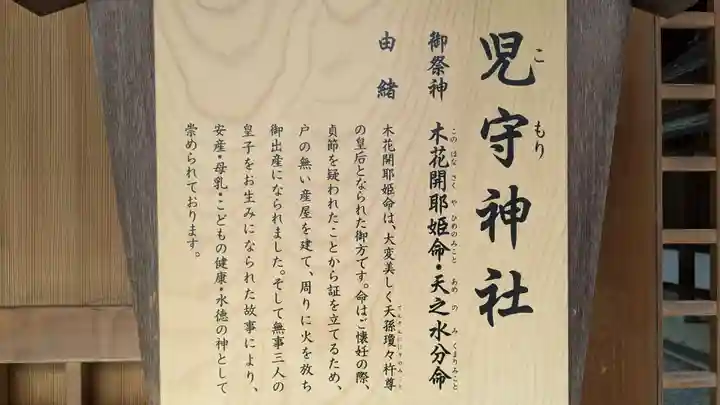 児守神社
こもり
御祭神 木花開耶姫命・天之水分命
このはなさくやひめのみこと あめのみくまりみこと
由緒
木花開耶姫命は、大変美しく天孫瓊々杵尊
てんそんににぎのみこと
の皇后となられた御方です。命はご懐妊の際、
貞節を疑われたことから証を立てるため、
戸の無い産屋を建て、周りに火を放ち
御出産になられました。そして無事三人の
皇子をお生みになられた故事により、
安産・母乳・こどもの健康・水徳の神として
崇められております。